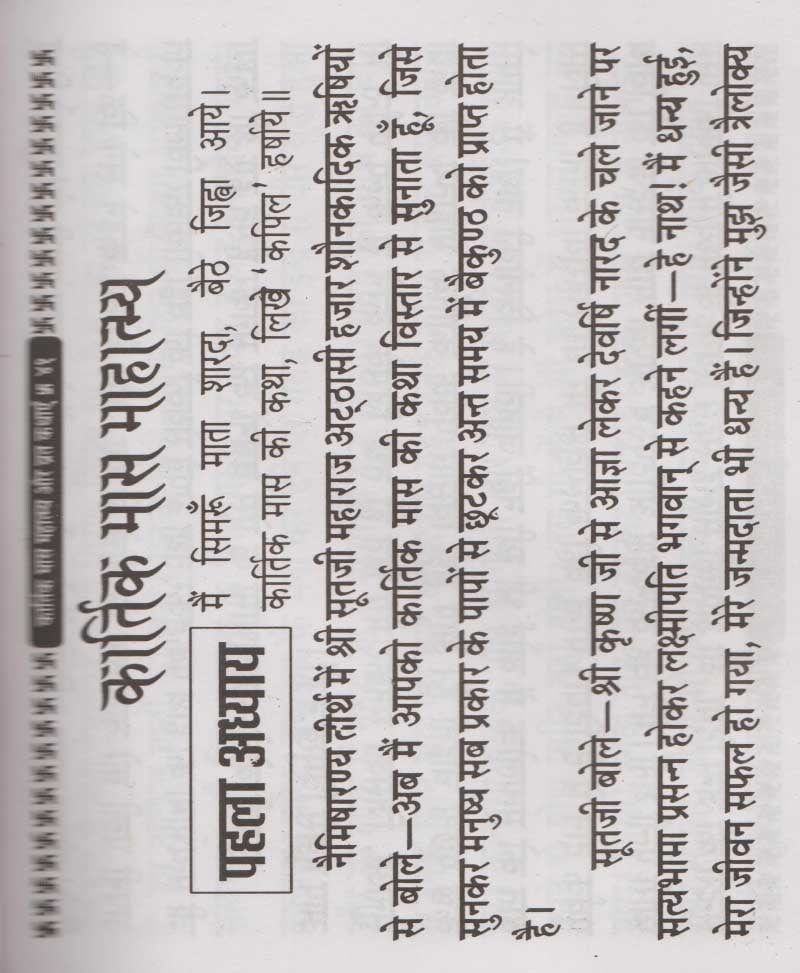 कार्तिक मास माहात्म्य और व्रत कथाएं ५१
कार्तिक मास माहात्म्य
पहला अध्याय
मैं सिमरूँ माता शारदा, बैठे जिह्वा आये।
कार्तिक मास की कथा, लिखे 'कपिल' हर्षाये॥
नैमिषारण्य तीर्थ में श्री सूतजी महाराज अट्ठासी हजार शौनकादिक ऋषियों
से बोले—अब मैं आपको कार्तिक मास की कथा विस्तार से सुनाता हूँ, जिसे
सुनकर मनुष्य सब प्रकार के पापों से छूटकर अन्त समय में बैकुण्ठ को प्राप्त होता
है।
सूतजी बोले—श्री कृष्ण जी से आज्ञा लेकर देवर्षि नारद के चले जाने पर
सत्यभामा प्रसन्न होकर लक्ष्मीपति भगवान् से कहने लगीं—हे नाथ! मैं धन्य हुई,
मेरा जीवन सफल हो गया, मेरे जन्मदाता भी धन्य हैं। जिन्होंने मुझ जैसी त्रैलोक्य